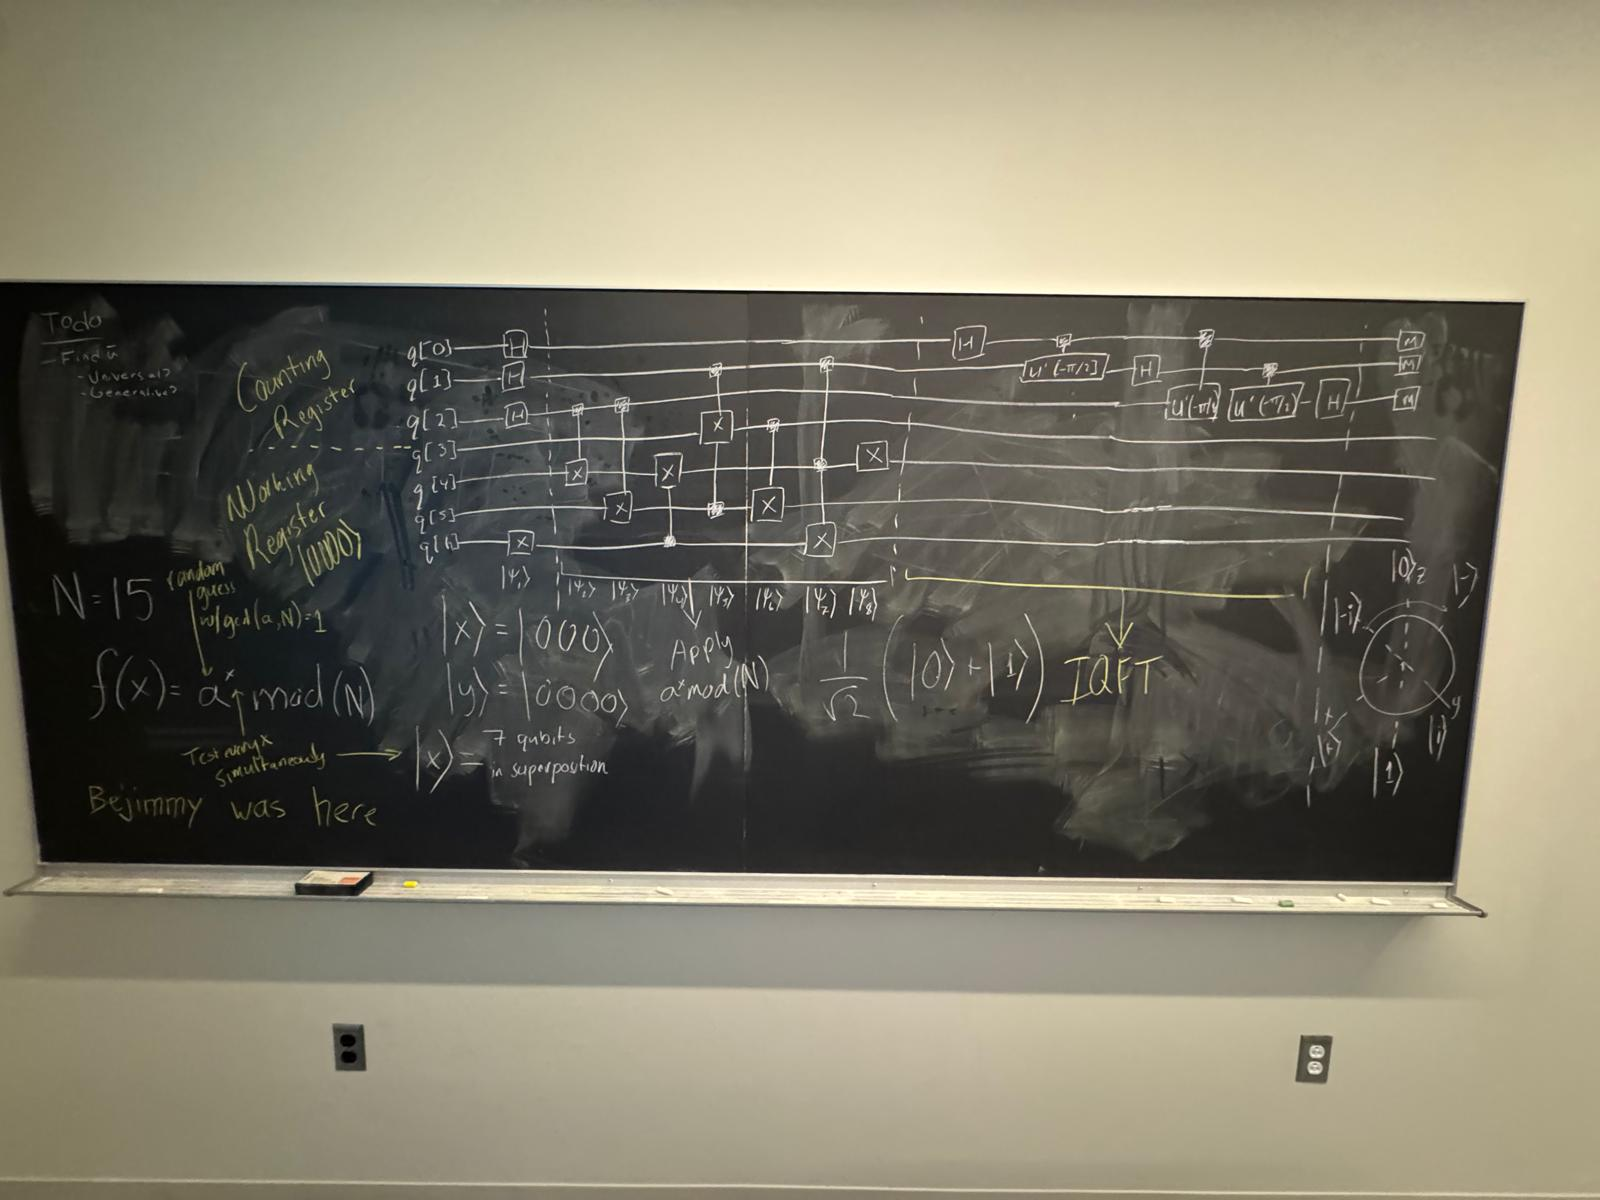 Todo
- Find ū
- Universal?
- Generalive?
Counting
Register
Working
Register
|0000⟩
q[0] H H M
q[1] H U'(-π/2) H M
q[2] H U'(-π/4) U'(-π/2) H M
q[3] X
q[4] X X X
q[5] X X
q[6] X X
|Ψ₁⟩ |Ψ₂⟩ |Ψ₃⟩ |Ψ₄⟩ |Ψ₅⟩ |Ψ₆⟩ |Ψ₇⟩ |Ψ₈⟩
N=15
random
guess
w/gcd(a,N)=1
f(x)= aˣ mod(N)
Test every x
simultaneously
|x⟩=|000⟩
|y⟩=|0000⟩
|x⟩= 7 qubits
in superposition
Apply
aˣmod(N)
1/√2 (|0⟩+|1⟩)
IQFT
|0⟩ z
|-⟩
|-i⟩
y
|i⟩
|+⟩
x
|1⟩
Bejimmy was here